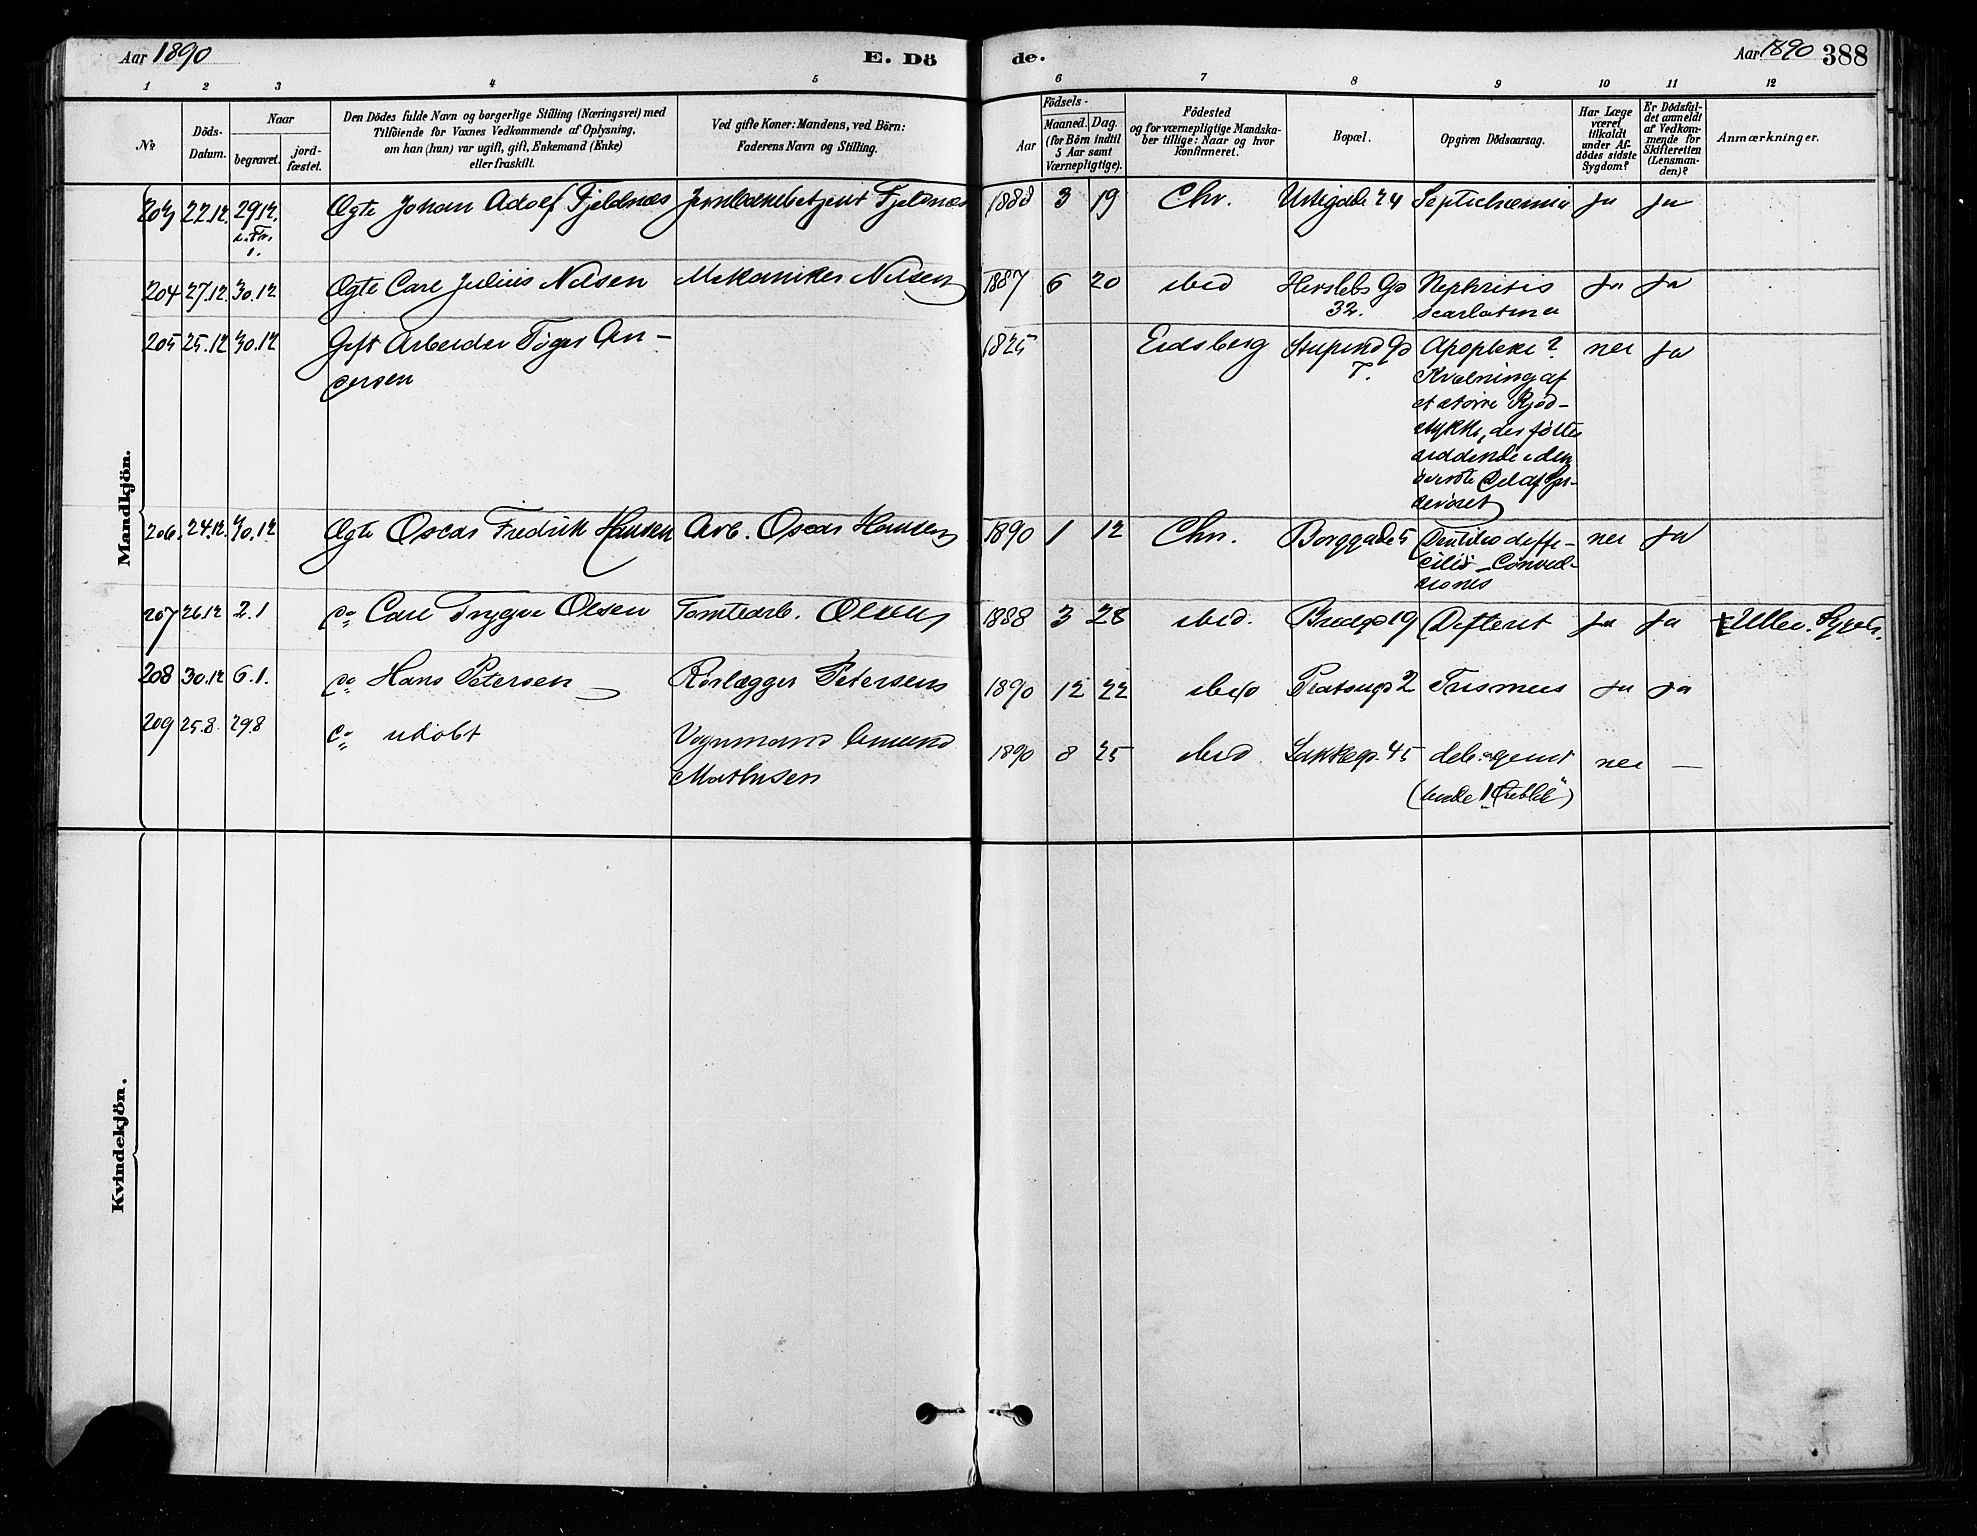 Aar 1890
E. Dö
de.
Aar 1890 388
1 2 3 4 5 6 7 8 9 10 11 12
No
Döds-
Datum.
Naar
begravet.
jord-
fæstet.
Den Dödes fulde Navn og borgerlige Stilling (Næringsvei) med
Tilföiende for Voxnes Vedkommende af Oplysning,
om han (hun) var ugift, gift, Enkemand (Enke)
eller fraskilt.
Ved gifte Koner: Mandens, ved Börn:
Faderens Navn og Stilling.
Födsels-
Aar
Maaned. Dag.
(for Börn indtil
5 Aar samt
Værnepligtige).
Födested
og for værnepligtige Mandska-
ber tillige: Naar og hvor
konfirmeret.
Bopæl.
Opgiven Dödsaarsag.
Har Læge
været
tilkaldt
under Af-
dödes sidste
Sygdom?
Er Dödsfal-
det anmeldt
af Vedkom-
mende for
Skifteretten
(Lensman-
den)?
Anmærkninger.
Mandkjön.
203 22.12. 29.12. Ægte Johan Adolf Fjeldnæs Jernbanebetjent Fjeldnæs 1888 3 19 Chr. Urtegade 24 Septichæmia ja ja
204 27.12. 30.12 Ægte Carl Julius Nilsen Mekaniker Nilsen 1887 6 20 ibid Herslebs Gd Nephritis ja ja
32. scarlatina
205 25.12 30.12 Gift Arbeider Töger An-
dersen
1825 Eidsberg Stupend Gd Apoplexi? nei ja
7. Kvælning af
et större Kjöd-
stykke, der
siddende i den
överste Del af
206. 24.12. 30.12 Ægte Oscar Fredrik Hansen Arb. Oscar Hansen 1890 1 12 Chr. Borggade 5 Dentitio diffi- nei ja
cilis - Convul-
siones
207 26.12 2.1 do Carl Trygve Olsen Tomtearb. Olsen 1888 3 28 ibid. Bredgd 19 Difterit ja ja Ullev. Sygeh.
208 30.12 6.1. do Hans Petersen Rörlægger Petersen 1890 12 22 ibid 2 Trismus ja ja
209 25.8. 29.8 do udöbt Vognmand Amund
Mathisen
1890 8 25 ibid Lakkegd. 45 deb. congenit nei —
(levede 1 Öieblik")
Kvindekjön.